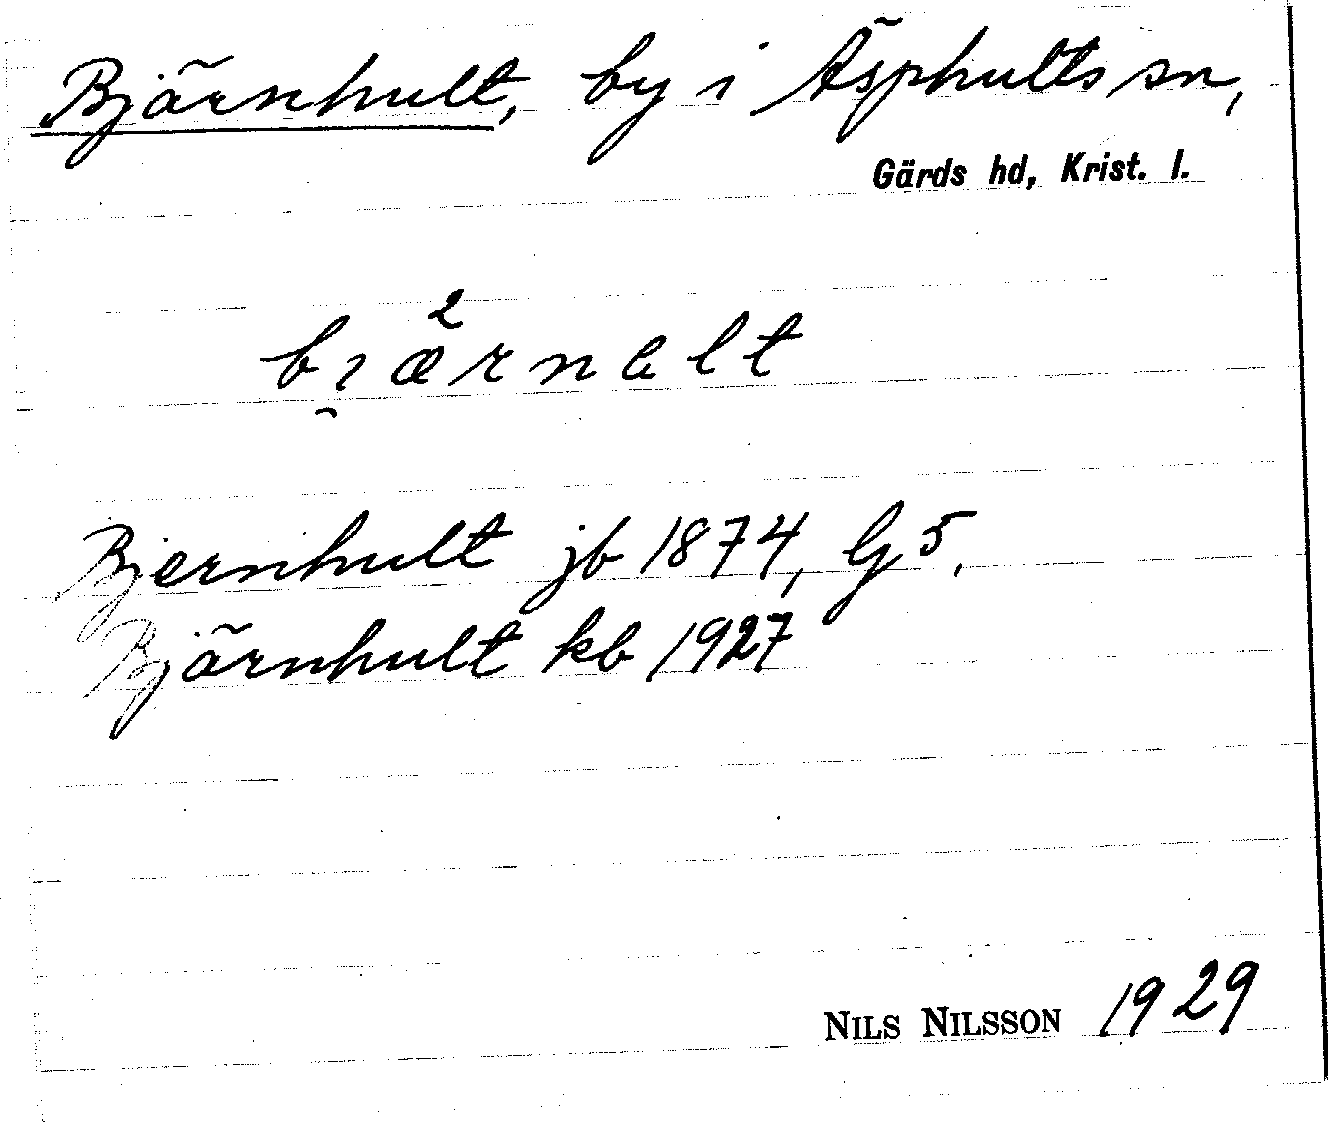 Bjärnhult, by i Äsphults sn,
Gärds hd, Krist. l.
bi̯æ²rnalt
Bjernhult jb 1874, G 5,
Bjärnhult kb 1927
NILS NILSSON 1929